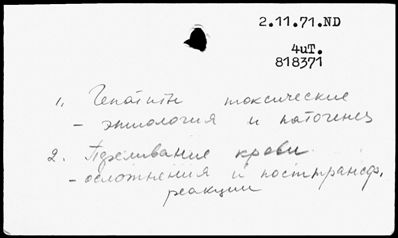 2.11.71.ND
4иТ.
818371
1. Гепатиты токсические
- этиология и патогенез
2. Переливание крови
- осложнения и посттрансф.
реакции